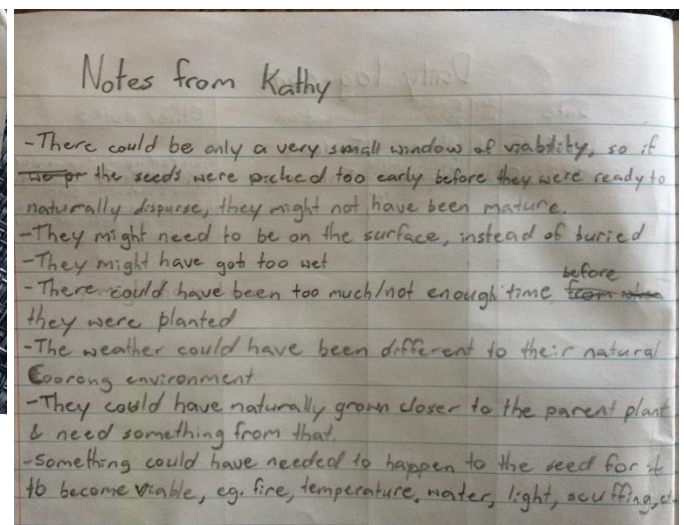 Notes from Kathy
-There could be only a very small window of viability, so if
the seeds were picked too early before they were ready to
naturally dispurse, they might not have been mature.
-They might need to be on the surface, instead of buried
-They might have got too wet
-There could have been too much/not enough time before
they were planted
-The weather could have been different to their natural
Coorong environment
-They could have naturally grown closer to the parent plant
& need something from that.
-Something could have needed to happen to the seed for it
to become viable, eg. fire, temperature, water, light, scuffing,